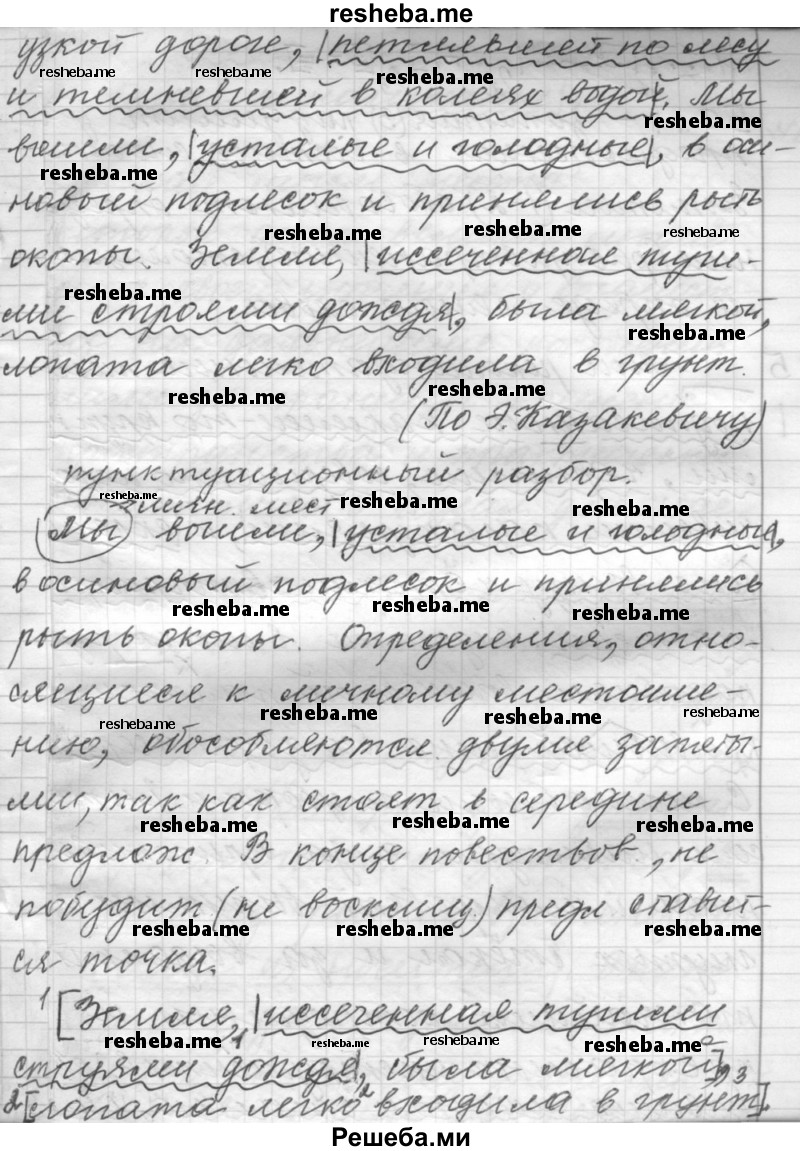 resheba.me
узкой дороге, |петлявшей по лесу
и темневшей в колеях водой|. Мы
вышли, |усталые и голодные|, в оси-
новый подлесок и принялись рыть
окопы. Земля, |иссеченная туги-
ми строями дождя|, была мягкой,
лопата легко входила в грунт.
(По Э. Казакевичу)
пунктуационный разбор.
личн. мест
Мы вышли, |усталые и голодные|,
в осиновый подлесок и принялись
рыть окопы. Определения, отно-
сящиеся к личному местоиме-
нию, обособляются двумя запяты-
ми, так как стоят в середине
предлож. В конце повествов., не
побудит (не восклиц) предл ставит-
ся точка.
1 [Земля, |иссеченная тугими
струями дождя|, была мягкой], 3
2 [лопата легко входила в грунт].
Решеба.ми